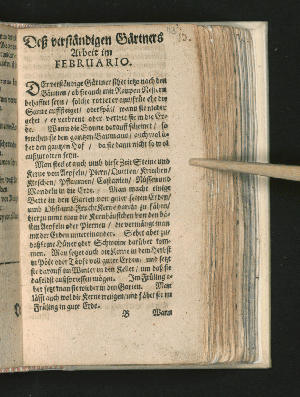 13.
Deß verständigen Gärtners
Arbeit im
FEBRUARIO.
DEr verständige Gärtner sihet jetzo nach den
Bäumen / ob sie auch mit Raupen Nestern
behafftet seyn / solche rottet er auß früh ehe die
Sonne auffsteiget / oder spät / wann sie nieder
gehet / er verbrent oder vertritt sie in die Er-
de. Wann die Sonne darauff scheinet / so
kriechen sie den gantzen Baum an / auch wol ü-
ber den gantzen Hof / da sie dann nicht so wol
außzurotten seyn.
Man steckt auch umb diese Zeit Steine und
Kerne von Aepfeln / Piern / Quitten / Kriechen /
Kirschen / Pflaumen / Castanien / Nüssen und
Mandeln in die Erde. Man macht einige
Bette in den Garten von guter feisten Erden /
und Obst und Frucht Kerne darein zu säen /
hier zu nimt man die Kernhäußchen von den bö-
sten Aepfeln oder Piernen / die vermängt man
mit der Erden untereinander. Sehet aber zu
daß keine Hüner oder Schweine darüber kom-
men. Man setzt auch die Kerne in dem Herbst
in Pötte oder Töpfe voll guter Erden / und setzt
sie darauff im Winter in den Keller / um daß sie
daselbst außschiessen mögen. Im Früling a-
ber setzt man sie wieder in den Garten. Man
läßt auch wol die Kerne weigen / und säet sie im
Früling in gute Erde.
B Wann